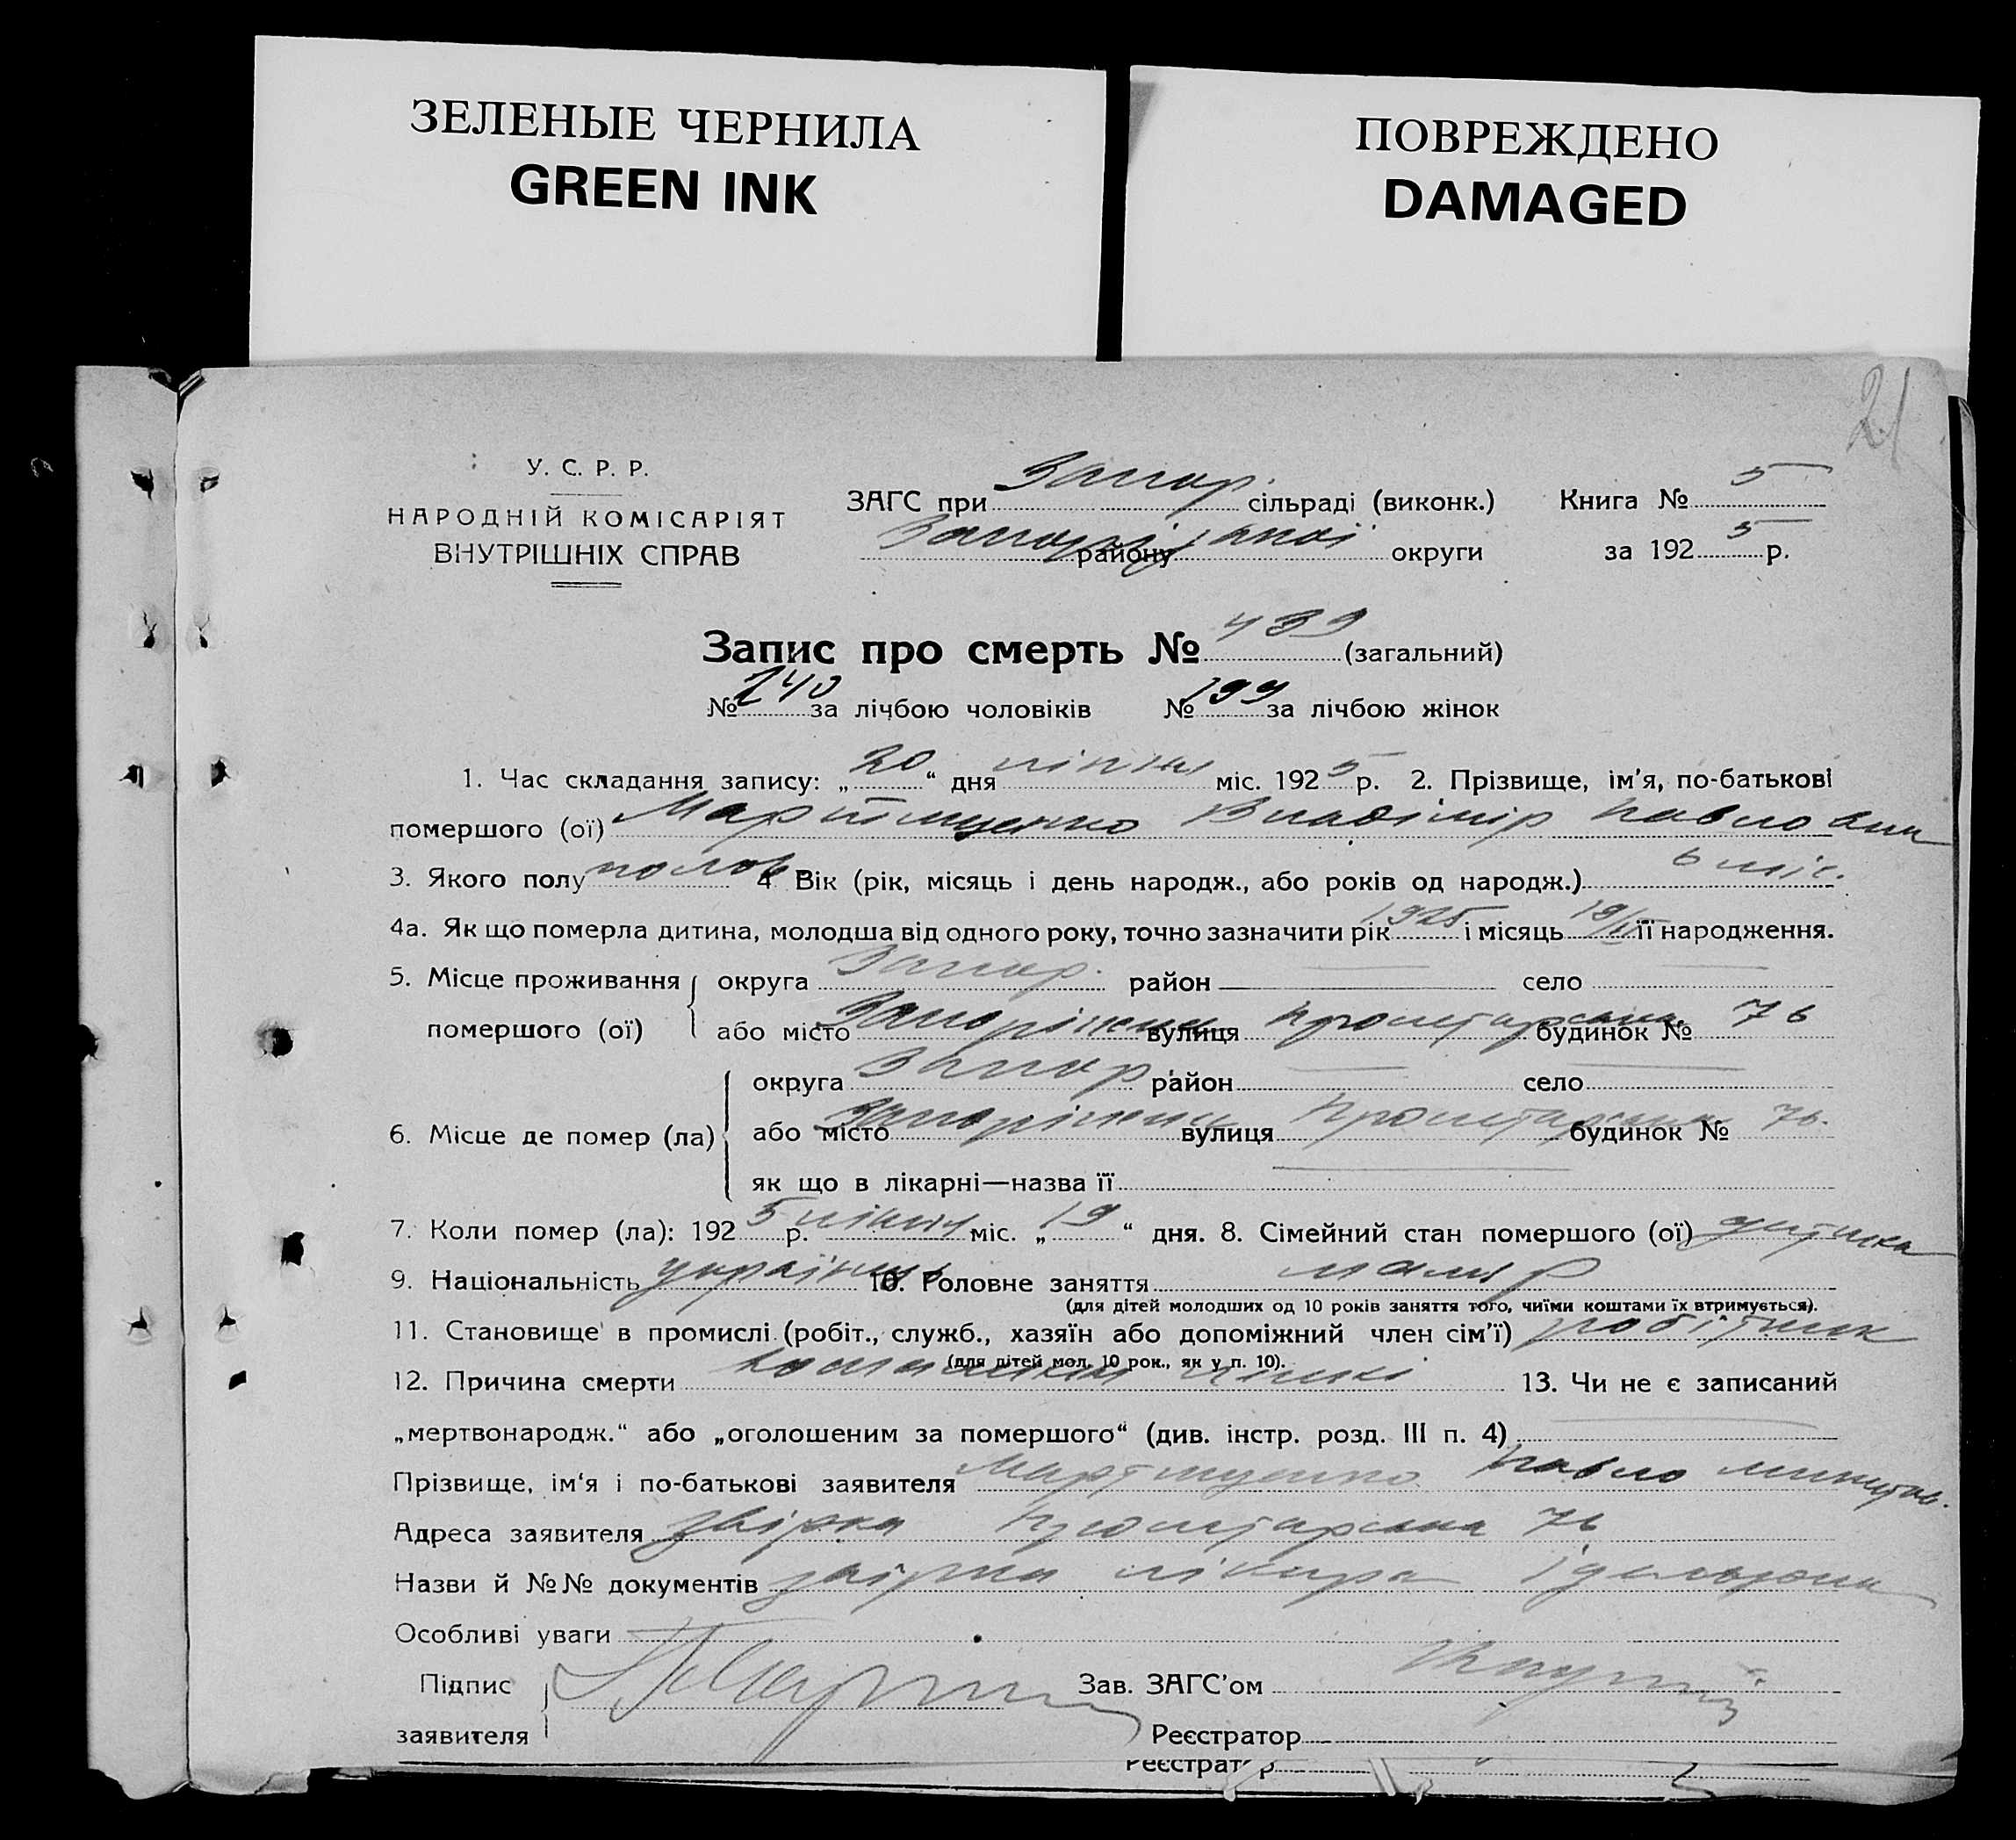 ЗЕЛЕНЫЕ ЧЕРНИЛА
GREEN INK
ПОВРЕЖДЕНО
DAMAGED
21
У. С. Р. Р.
НАРОДНІЙ КОМІСАРІЯТ
ВНУТРІШНІХ СПРАВ
ЗАГС при Запор. сільраді (виконк.) Книга № 5
Запоріжкої району округи за 192 5 р.
Запис про смерть № 439 (загальний)
№ 240 за лічбою чоловіків № 199 за лічбою жінок
1. Час складання запису: „ 20 “ дня липня міс. 192 5 р. 2. Прізвище, ім'я, по-батькові
помершого (ої) Мартищенко Владімір Павлович
3. Якого полу чолов 4 Вік (рік, місяць і день народж., або років од народж.) 6 міс.
4а. Як що померла дитина, молодша від одного року, точно зазначити рік 1925 і місяць 19/I її народження.
5. Місце проживання округа Запор. район село
помершого (ої) або місто Запоріжжя вулиця Пролетарська будинок № 76
округа Запор. район село
6. Місце де помер (ла) або місто Запоріжжя вулиця Пролетарська будинок № 76.
як що в лікарні—назва її
7. Коли помер (ла): 192 5 р. липня міс. „ 19 “ дня. 8. Сімейний стан помершого (ої) дитинка
9. Національність українець 10. Головне заняття маляр
(для дітей молодших од 10 років заняття того, чиїми коштами їх втримується).
11. Становище в промислі (робіт., служб., хазяїн або допоміжний член сім'ї) робітник
(для дітей мол. 10 рок., як у п. 10).
12. Причина смерти 13. Чи не є записаний
„мертвонародж.“ або „оголошеним за помершого“ (див. інстр. розд. III п. 4)
Прізвище, ім'я і по-батькові заявителя Мартищенко Павло Микитов.
Адреса заявителя Пролетарська 76
Назви й №№ документів лікаря
Особливі уваги
Підпис
заявителя
Зав. ЗАГС'ом
Реєстратор
Реєстратор